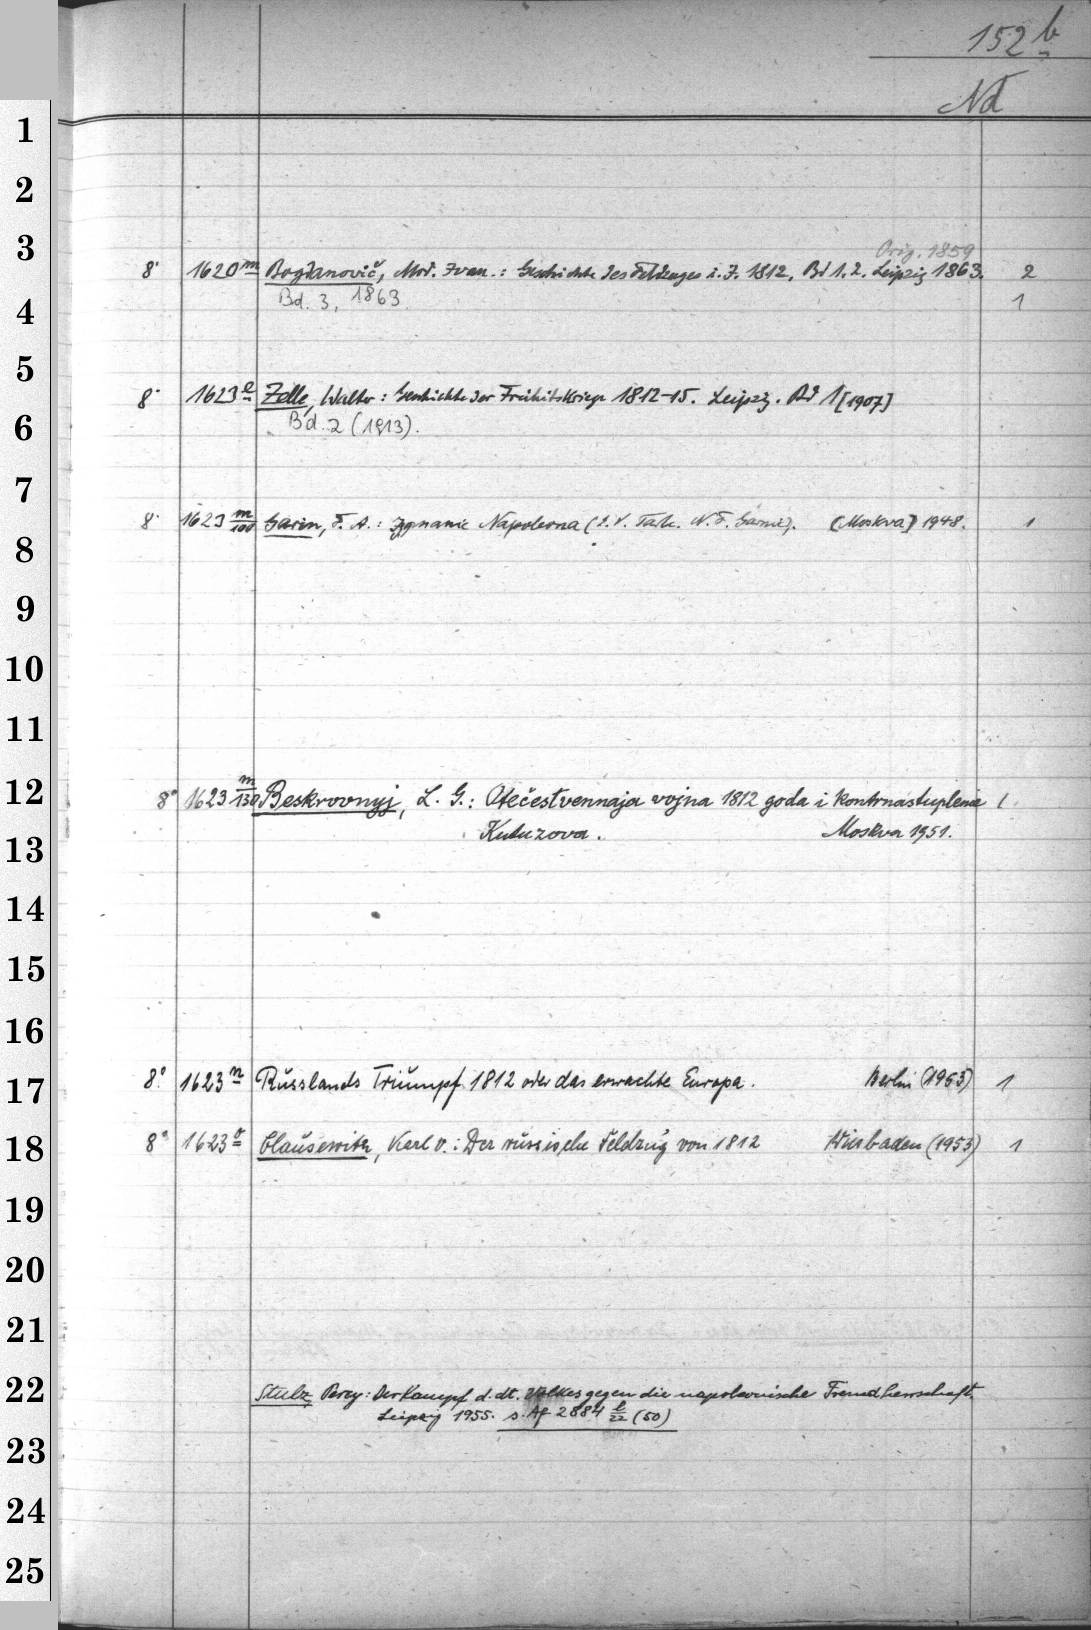 152 b
Nd
1
2
3
Orig. 1859
8° 1620 m Bogdanovič, Mod. Ivan.: Geschichte des Feldzuges i. J. 1812. Bd 1. 2. Leipzig 1863. 2
4
Bd. 3, 1863. 1
5
8° 1623 l Zelle, Walter: Geschichte der Freiheitskriege 1812-15. Leipzig. Bd 1 [1907]
6
Bd. 2 (1913).
7
8° 1623 m/100 Garin, F. A.: Izgnanie Napoleona (Moskva) 1948. 1
8
9
10
11
12
8° 1623 m/130 Beskrovnyj, L. G.: Otečestvennaja vojna 1812 goda i kontrnastuplenie 1
13
Kutuzova. Moskva 1951.
14
15
16
17
8° 1623 n Russlands Triumpf 1812 oder das erwachte Europa. Berlin (1953) 1
18
8° 1623 o Clausewitz, Karl v.: Der russische Feldzug von 1812 Wiesbaden (1953) 1
19
20
21
22
Stulz, Percy: Der Kampf d. dt. Volkes gegen die napoleonische Fremdherrschaft.
Leipzig 1955. s. Af 2884 l/22 (50)
23
24
25